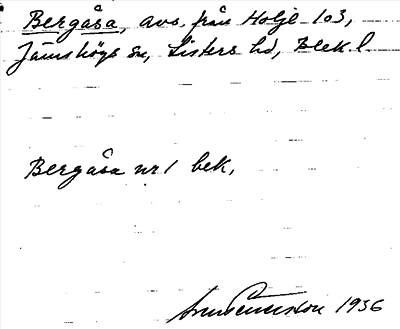 Bergåsa, avs. från Holje 1o3,
Jämshögs sn, Listers hd, Blek. l.
Bergåsa nr 1 bek.
1936